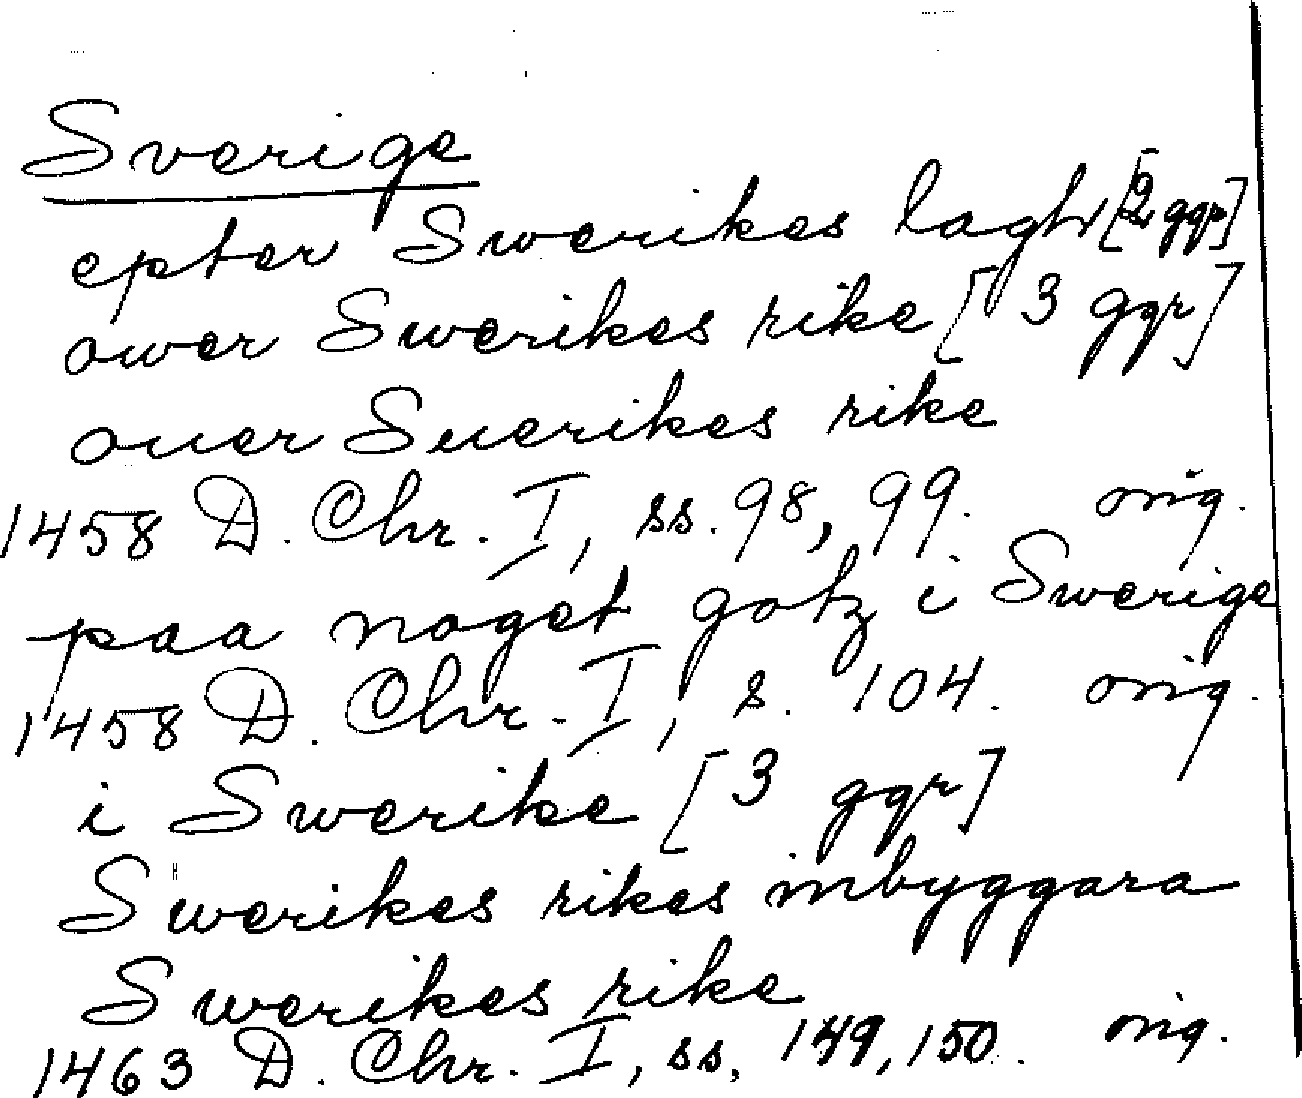 Sverige
epter Swerikes lagh [2 ggr]
ower Swerikes rike [3 ggr]
ouer Suerikes rike
1458 D. Chr. I, ss. 98, 99. orig.
paa noget gotz i Swerige
1458 D. Chr. I, s. 104. orig.
i Swerike [3 ggr]
Swerikes rikes inbyggara
Swerikes rike
1463 D. Chr. I, ss. 149, 150. orig.